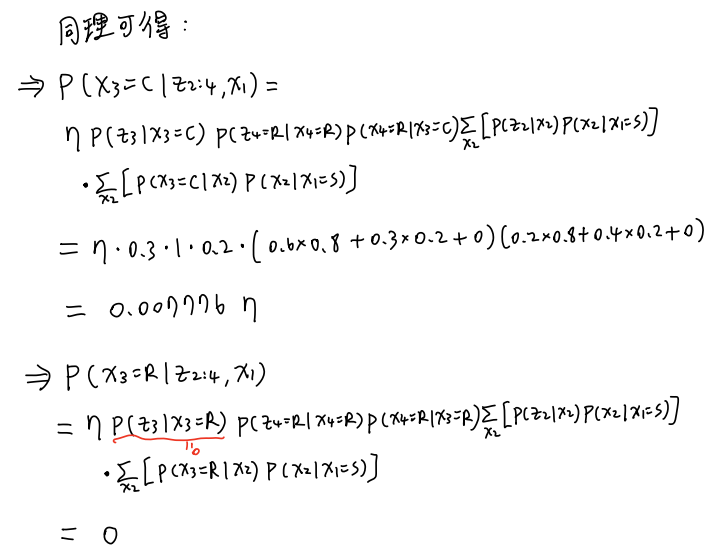 同理可得：
⇒ P(x₃=C|z₂:₄,x₁)=
η P(z₃|x₃=C) P(z₄=R|x₄=R) P(x₄=R|x₃=C) Σx₂ [P(z₂|x₂) P(x₂|x₁=S)]
· Σx₂ [P(x₃=C|x₂) P(x₂|x₁=S)]
= η · 0.3 · 1 · 0.2 · (0.6×0.8+0.3×0.2+0)(0.2×0.8+0.4×0.2+0)
= 0.007776 η
⇒ P(x₃=R|z₂:₄,x₁)
= η P(z₃|x₃=R) P(z₄=R|x₄=R) P(x₄=R|x₃=R) Σx₂ [P(z₂|x₂) P(x₂|x₁=S)]
=0
· Σx₂ [P(x₃=R|x₂) P(x₂|x₁=S)]
= 0